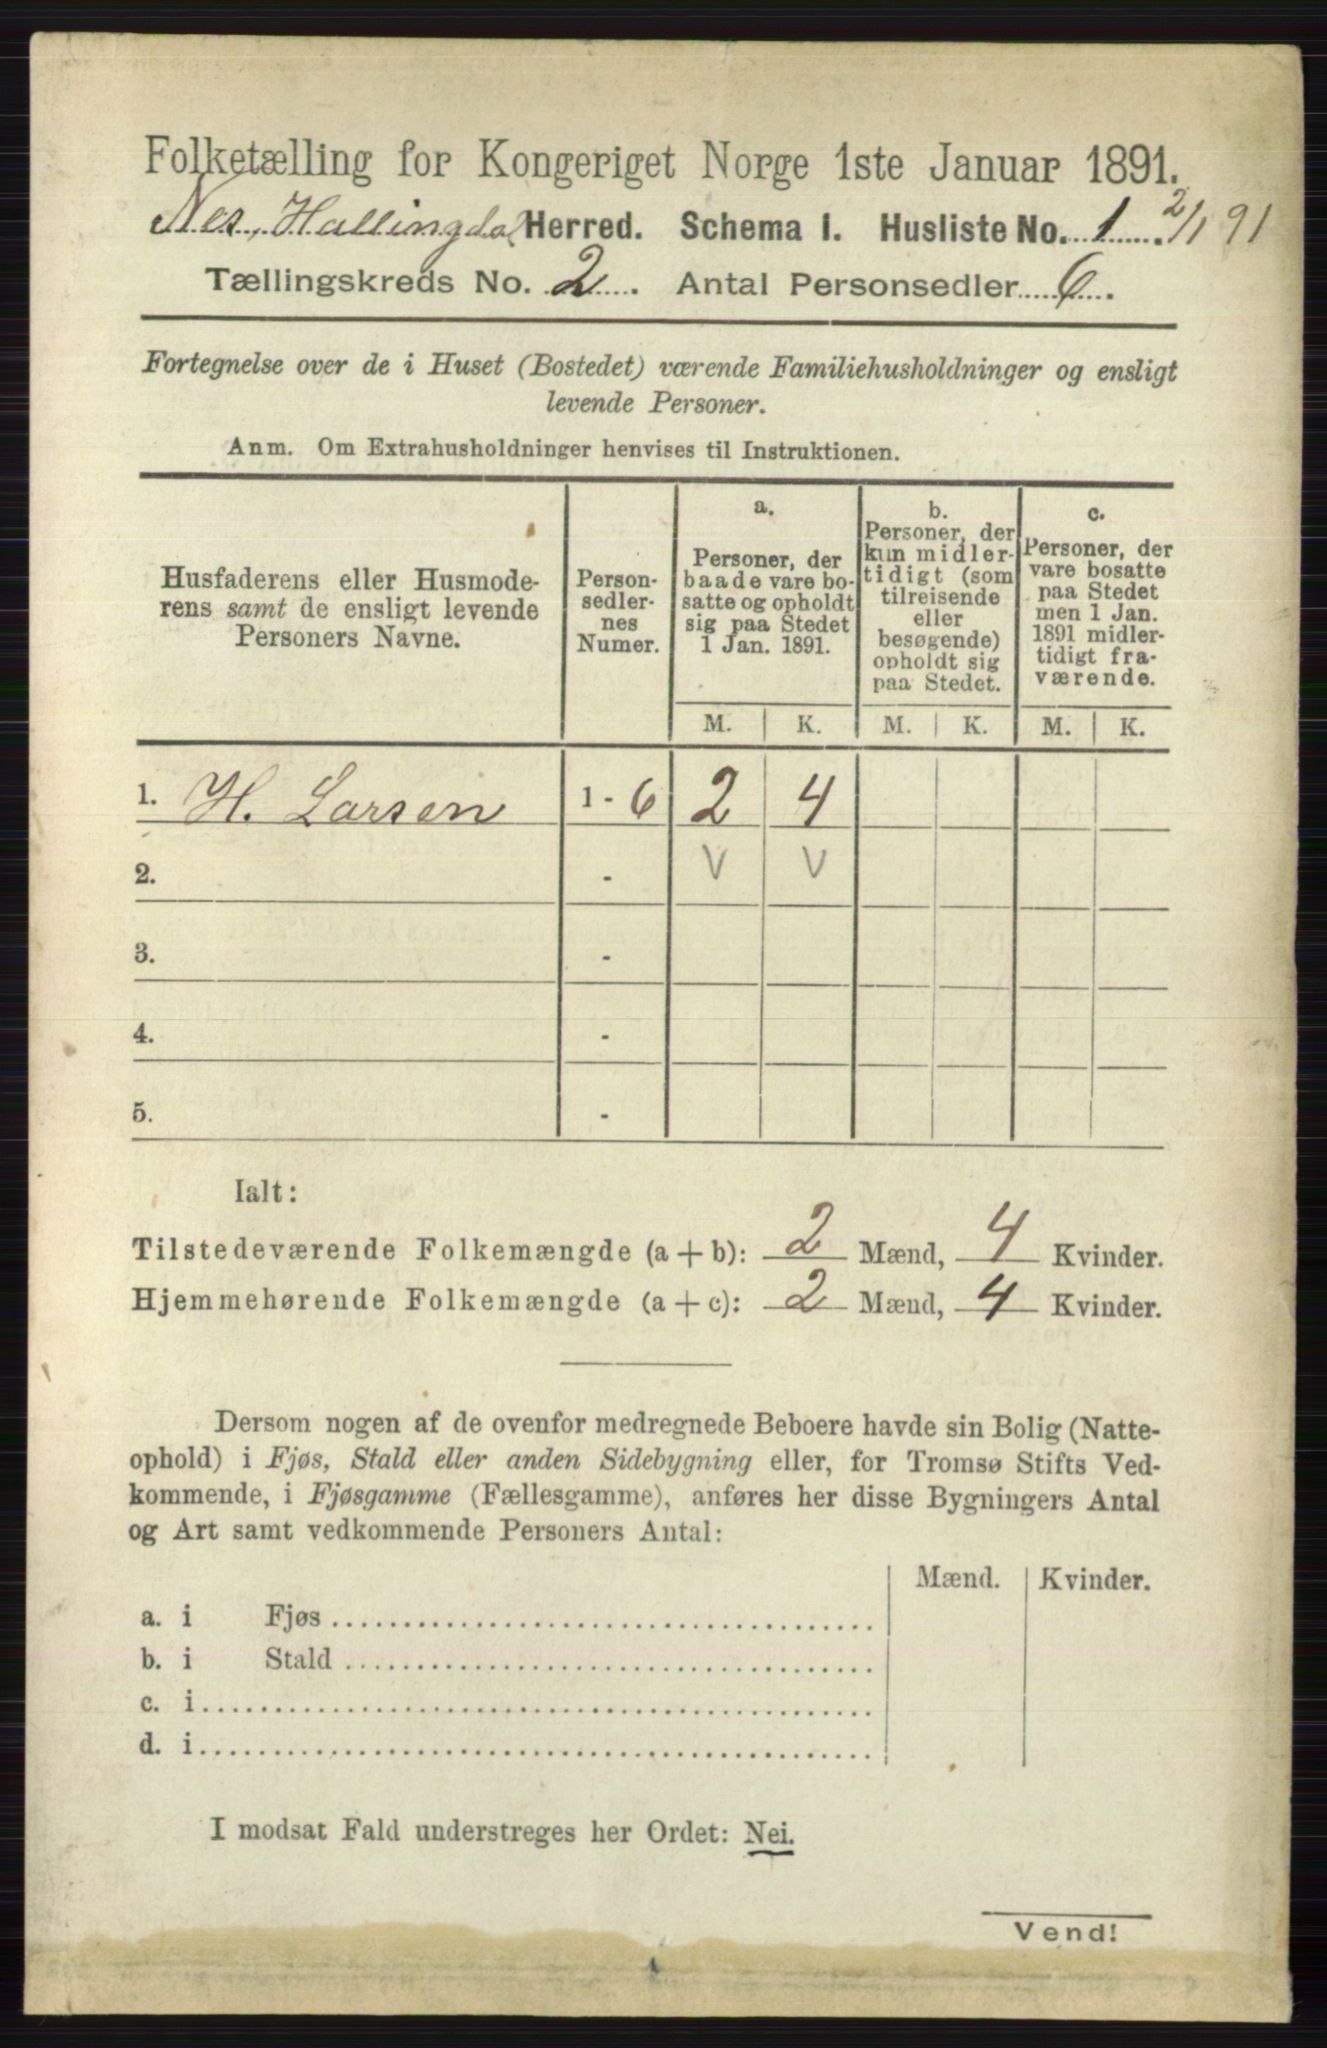 Folketælling for Kongeriget Norge 1ste Januar 1891.
Nes, Hallingdal Herred. Schema I. Husliste No. 1. 2/1 91
Tællingskreds No. 2. Antal Personsedler 6.
Fortegnelse over de i Huset (Bostedet) værende Familiehusholdninger og ensligt
levende Personer.
Anm. Om Extrahusholdninger henvises til Instruktionen.
Husfaderens eller Husmode-
rens samt de ensligt levende
Personers Navne.
Person-
sedler-
nes
Numer.
a.
Personer, der
baade vare bo-
satte og opholdt
sig paa Stedet
1 Jan. 1891.
b.
Personer, der
kun midler-
tidigt (som
tilreisende
eller
besøgende)
opholdt sig
paa Stedet.
c.
Personer, der
vare bosatte
paa Stedet
men 1 Jan.
1891 midler-
tidigt fra-
værende.
M. K. M. K. M. K.
1. H. Larsen 1 - 6 2 4
2. - V V
3. -
4. -
5. -
Ialt:
Tilstedeværende Folkemængde (a + b): 2 Mænd, 4 Kvinder.
Hjemmehørende Folkemængde (a + c): 2 Mænd, 4 Kvinder.
Dersom nogen af de ovenfor medregnede Beboere havde sin Bolig (Natte-
ophold) i Fjøs, Stald eller anden Sidebygning eller, for Tromsø Stifts Ved-
kommende, i Fjøsgamme (Fællesgamme), anføres her disse Bygningers Antal
og Art samt vedkommende Personers Antal:
Mænd. Kvinder.
a. i Fjøs
b. i Stald
c. i
d. i
I modsat Fald understreges her Ordet: Nei.
Vend!